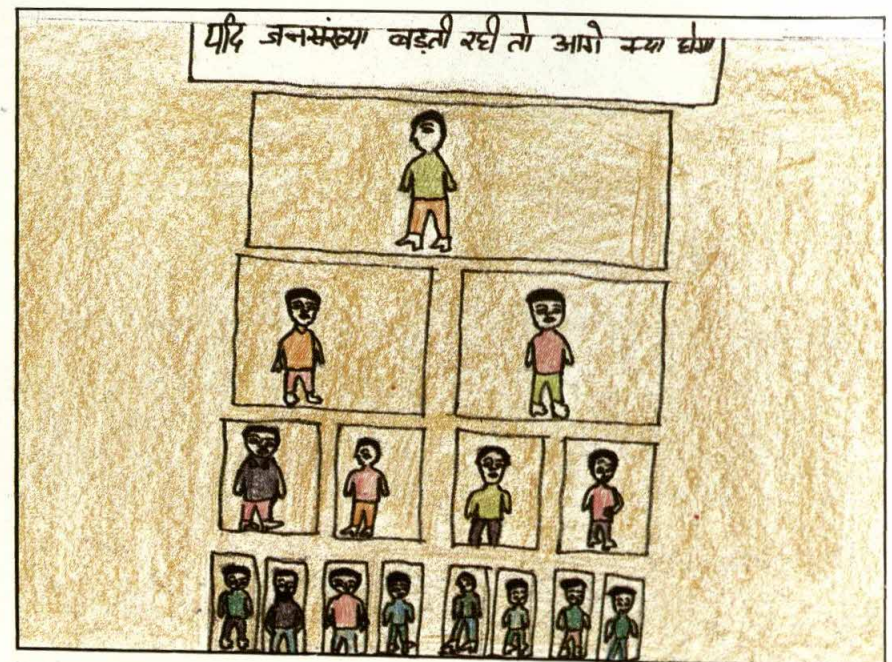 यदि जनसंख्या बड़ती रही तो आगे क्या होगा